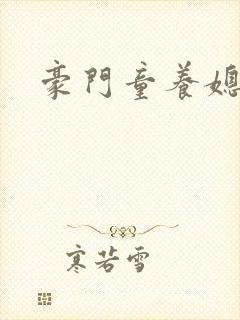 豪門童養媳
寒若雪